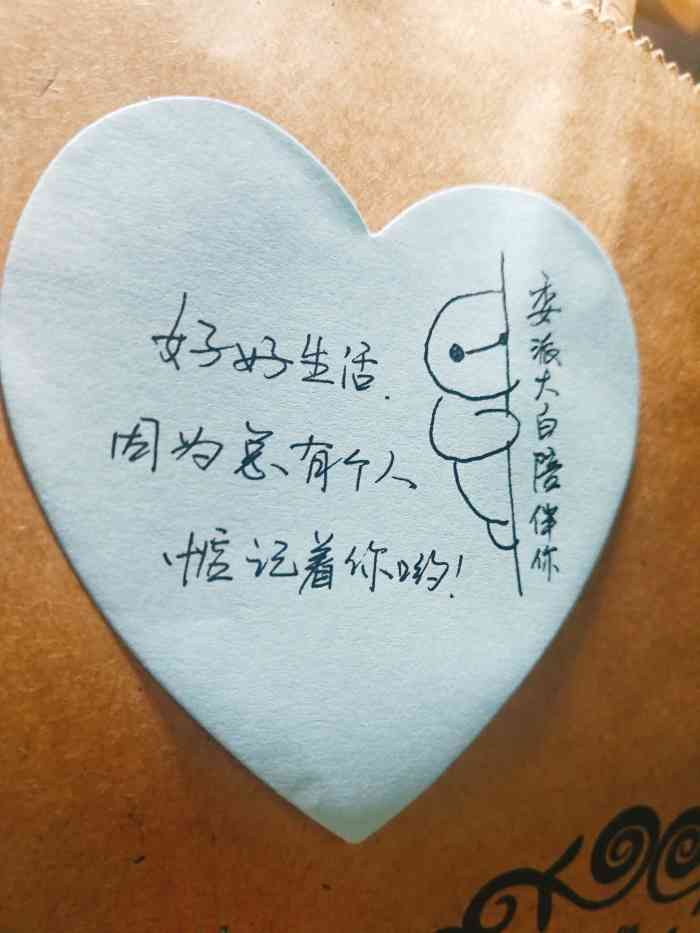 好好生活.
因为总有个人
惦记着你哟!
委派大白陪伴你